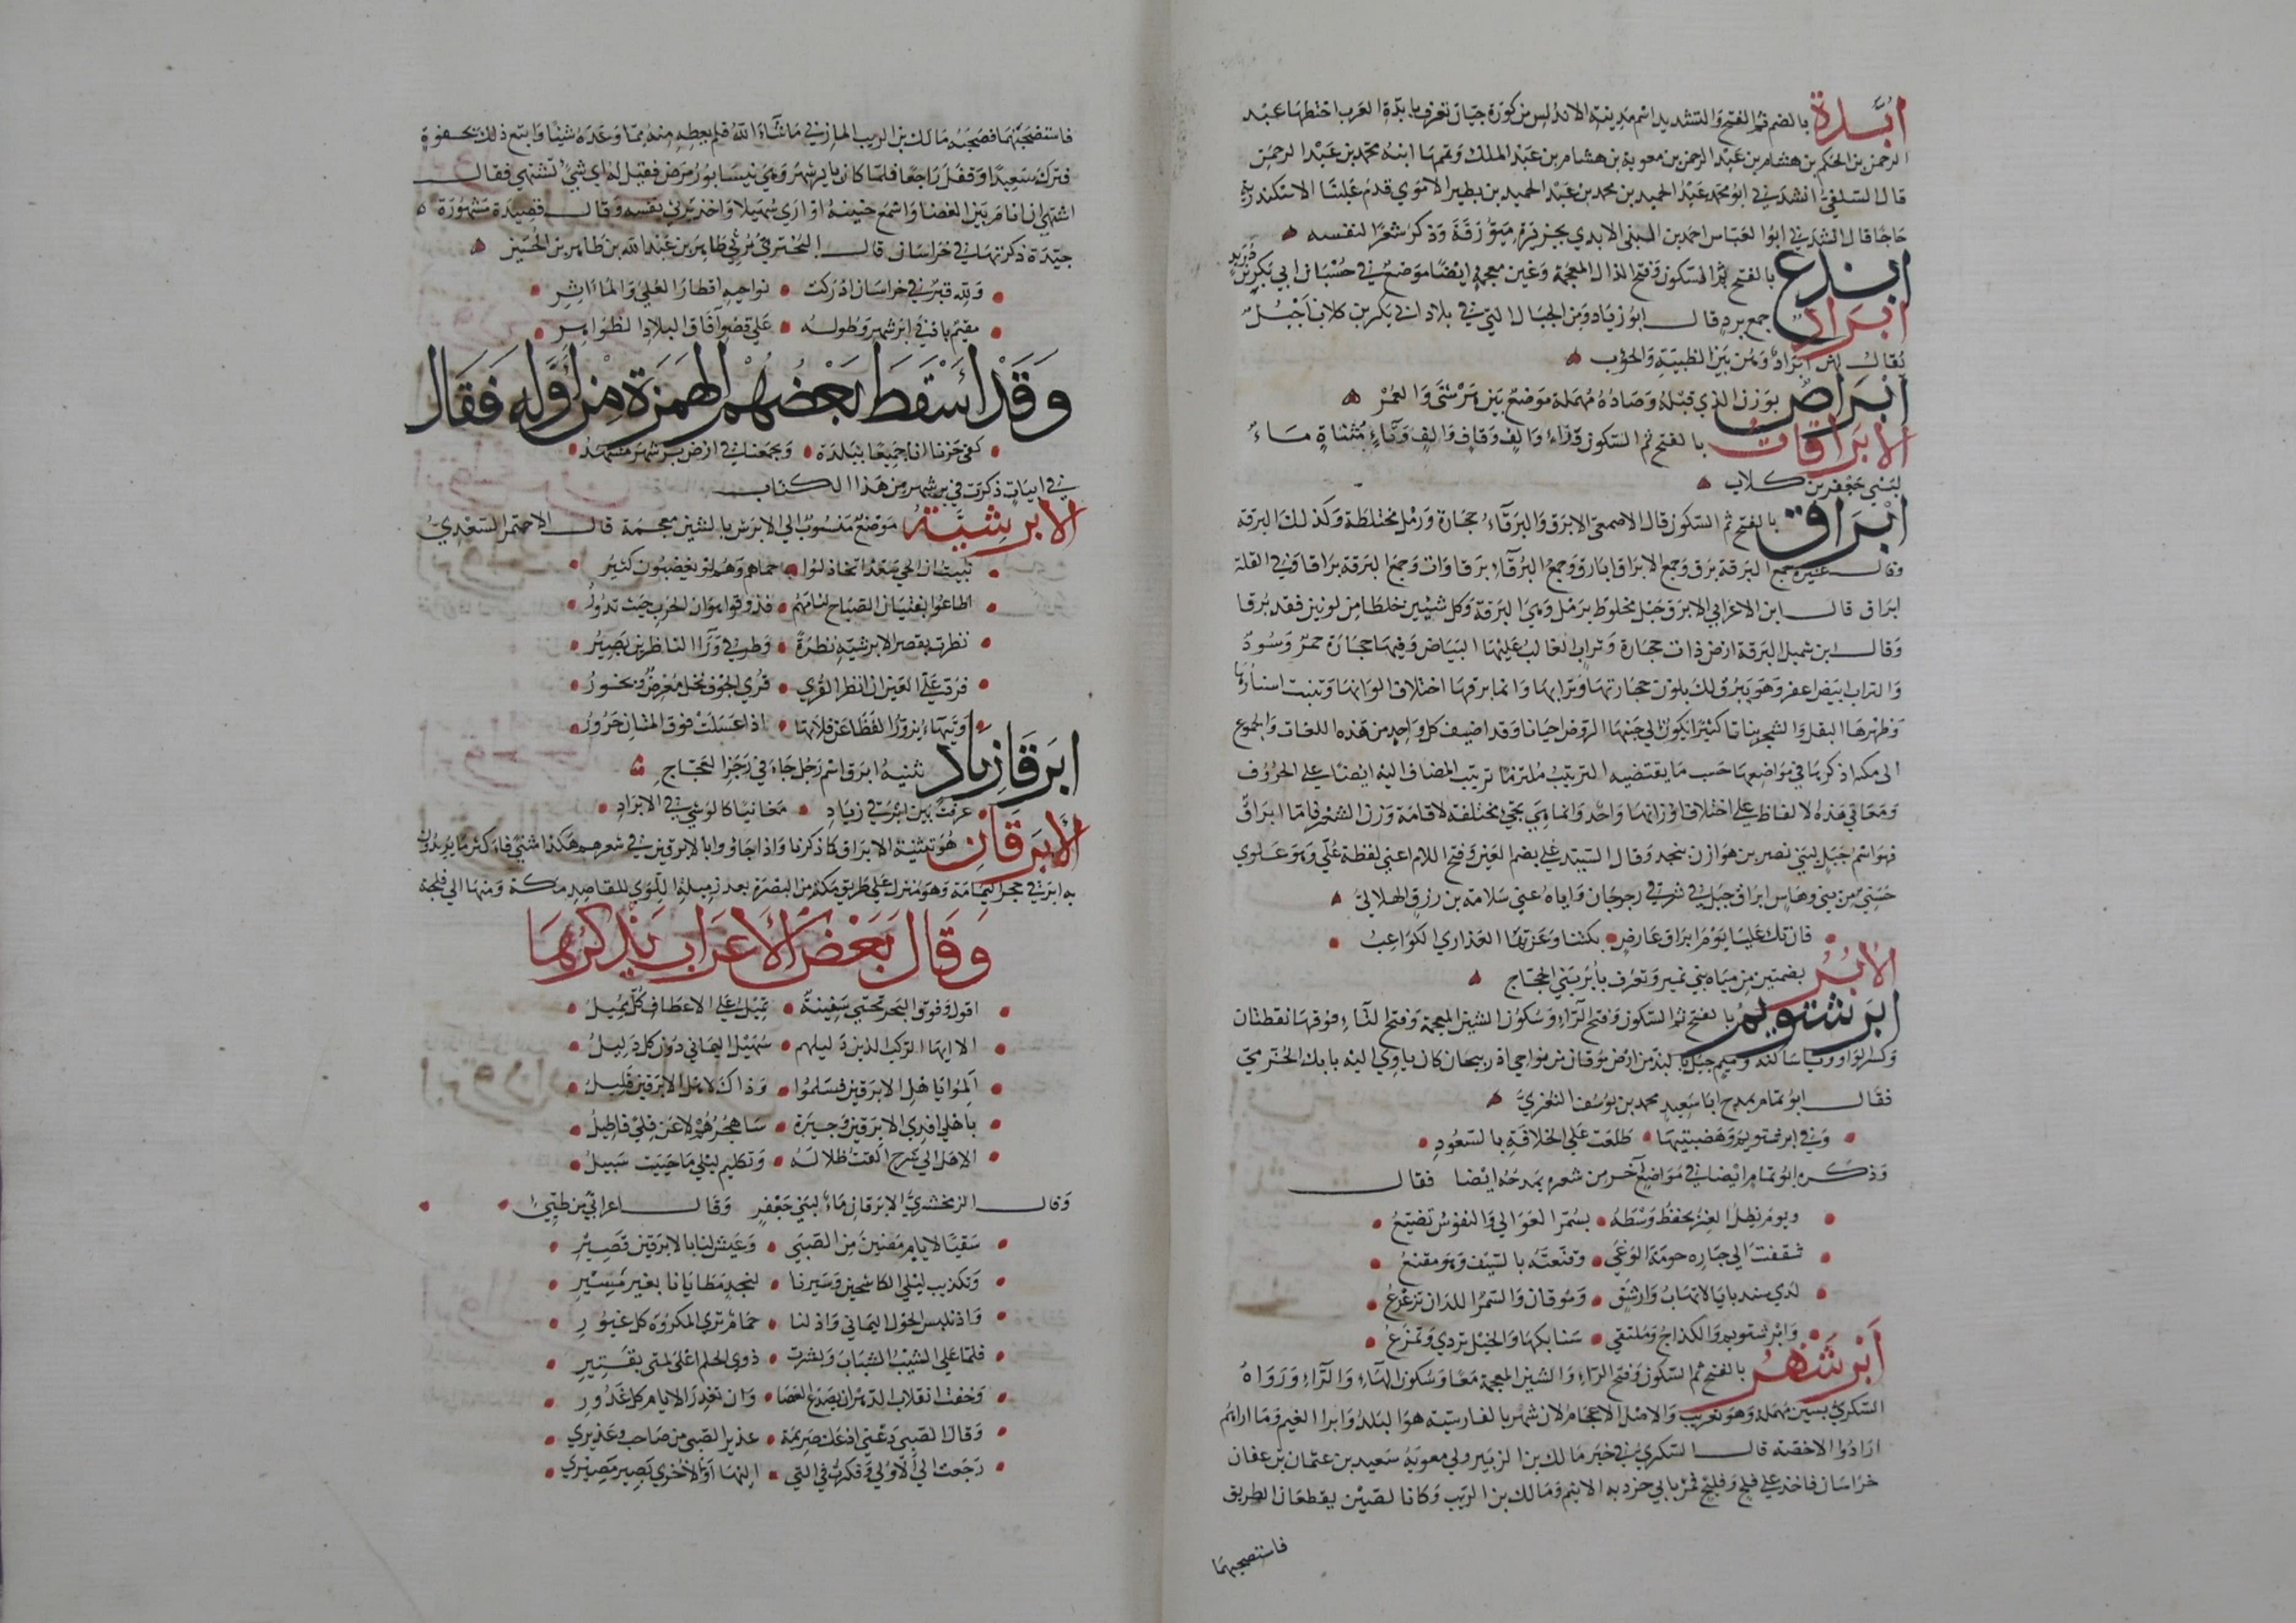 أُبَّدة بالضم ثم الفتح والتشديد اسم مدينة الاندلس من كورة جيان تعرف بابدة العرب اختطها عبد
الرحمن بن الحكم بن هشام بن عبد الرحمن بن معوية بن هشام بن عبد الملك وتممها ابنه محمد بن عبد الرحمن
قال السلفي انشدني ابو محمد عبد الحميد بن محمد بن عبد الحميد بن بطير الاموي قدم علينا الاسكندرية
حاجا قال انشدني ابو العباس احمد بن البني الابدي بجزيرة ميورقة وذكر شعرا لنفسه
ابذغ بالفتح ثم السكون وفتح الذال المعجمة وغين معجمة ايضا موضع في حسبان ابي بكر بن دريد
ابراد جمع برد قال ابو زياد ومن الجبال التي في بلاد ابي بكر بن كلاب اجبل
يقال لهن ابراد وهن بين الظبية والحوب
ابراص بوزن الذي قبله وصاده مهملة موضع بين هرشى والغمر
الابراقات بالفتح ثم السكون وراء والف وقاف والف وتاء مثناة ماء
لبني جعفر بن كلاب
ابراق بالفتح ثم السكون قال الاصمعي الابرق والبرقاء حجارة ورمل مختلطة وكذلك البرقة
وقال غيره جمع البرقة برق وجمع الابراق ابارق وجمع البرقاء برقاوات وجمع البرقة براقا وفي القلة
ابراق قال ابن الاعرابي الابرق جبل مخلوط برمل وهي البرقة وكل شيئين خلطا من لونين فقد برقا
وقال ابن شميل البرقة ارض ذات حجارة وتراب الغالب عليها البياض وفيها حجارة حمر وسود
والتراب ابيض اعفر وهو يبرق لك بلون حجارتها وترابها وانما برقها اختلاف الوانها وتنبت اسنادها
وظهرها البقل والشجر نباتا كثيرا يكون الى جنبها الروض احيانا وقد اضيف كل واحد من هذه اللغات والجموع
الى مكنه اذكرها في مواضعها حسب ما يقتضيه الترتيب ملتزما ترتيب المضاف اليه ايضا على الحروف
ومعاني هذه الالفاظ على اختلاف اوزانها واحد وانما هي تجيء مختلفة لاقامة وزن الشعر فاما ابراق
فهو اسم جبل لبني نصر بن هوازن بنجد وقال السيد علي بضم العين وفتح اللام اعني لفظة علي وهو علوي
حسني من بني وهاس ابراق جبل في شرقي رجرجان واياه عنى سلامة بن رزق الهلالي
فان تك عليا يوم ابراق عارض • بكتنا وعزتها العذارى الكواعب
الابر بضمتين من مياه بني نمير وتعرف بابر بني الحجاج
ابرشتويم بالفتح ثم السكون وفتح الراء وسكون الشين المعجمة وفتح التاء فوقها نقطتان
وكسر الواو وياء ساكنة وميم جبل بالبذ من ارض موقان من نواحي اذربيجان كان ياوي اليه بابك الخرمي
فقال ابو تمام يمدح ابا سعيد محمد بن يوسف الثغري
وفي ابرشتويم وهضبتيها • طلعت على الخلافة بالسعود
وذكره ابو تمام ايضا في مواضع اخر من شعره يمدحه ايضا فقال
ويوم نظل العز يحفظ وسطه • بسمر العوالي والنفوس تضيع
شققت الى جباره حومة الوغى • وقنعته بالسيف وهو مقنع
لدى سندبايا الاتهاب وارشق • وموقان والسمر اللدان تزعزع
وابرشتويم والكذاج وملتقى • سنابكها والخيل تردي وتمزع
أبرشهر بالفتح ثم السكون وفتح الراء والشين المعجمة معا وسكون الهاء والراء ورواه
السكري بسين مهملة وهو تعريب والاصل الاعجام لان شهر بالفارسية هو البلد وابر الغيم وما اراهم
ارادوا الا خصبه قال السكري في خبر مالك بن الزبير ولي معوية سعيد بن عثمان بن عفان
خراسان فاخذ على فلج وفليج فمر بابي حردبه الاثيم ومالك بن الريب وكانا لصين يقطعان الطريق
فاستصحبهما
فاستصحبهما فصحبه مالك بن الريب المازني ما شاء الله فلم يعطه منه مما وعده شيئا واتبع ذلك بجفوة
فترك سعيدا وقفل راجعا فلما كان بابرشهر وهي نيسابور مرض فقيل له اي شيء تشتهي فقال
اشتهي ان انام بين الغضا واسمع حنينه او ارى سهيلا واخذ يرثي نفسه وقال قصيدة مشهورة
جيدة ذكرتها في خراسان قال البحتري يرثي طاهر بن عبد الله بن طاهر بن الحسين
ولله قبر في خراسان ادركت • نواحيه اقطار العلى والمآثر
مقيم بادنى ابرشهر وطوله • على قصو آفاق البلاد الظواهر
وقد اسقط بعضهم الهمزة من اوله فقال
كفى حزنا انا جميعا ببلدة • ويجمعنا في ارض برشهر مشهد
في ابيات ذكرت في برشهر من هذا الكتاب
الابرشية موضع منسوب الى الابرش بالشين معجمة قال الاحيمر السعدي
نبيت ان الحي سعدا تخاذلوا • حماهم وهم لو يغضبون كثير
اطاعوا لفتيان الصباح لئامهم • فذوقوا هوان الحرب حيث تدور
نظرت بقصر الابرشية نظرة • وطرفي وراء الناظرين بصير
فرد علي العين ان انظر القرى • قرى الجوف نخل معرض وبحور
وتيهاء يزور القطا عن فلاتها • اذا عسلت فوق المتان حرور
ابرقا زياد تثنية ابرق اسم رجل جاء في رجز العجاج
عرفت بين ابرقي زياد • مغانيا كالوشي في الابراد
الابرقان هو تثنية الابراق كما ذكرنا واذا جاؤوا بالابرقين في شعرهم هكذا مثنى فاكثر ما يريدون
به ابرقي حجر اليمامة وهو منزل على طريق مكة من البصرة بعد رميلة اللوى للقاصد مكة ومنها الى فلجة
وقال بعض الاعراب يذكرهما
اقول وفوق البحر تحتي سفينة • تميل على الاعطاف كل مميل
الا ايها الركب الذين دليلهم • سهيل اليماني دون كل دليل
الموا باهل الابرقين فسلموا • وذاك لاهل الابرقين قليل
باهلي افدي الابرقين وجيرة • ساهجرهم لا عن قلى فاطيل
الا هل الى سرح الفت ظلاله • وتكليم ليلى ما حييت سبيل
وقال الزمخشري الابرقان ماء لبني جعفر وقال اعرابي من طيء
سقيا لايام مضين من الصبى • وعيش لنا بالابرقين قصير
وتكذيب ليلى الكاشحين وسيرنا • لنجد مطايانا بغير مسير
واذ نلبس الحول اليماني واذ لنا • حمام ترى المكروه كل غيور
فلما علي الشيب الشباب وبشرت • ذوي الحلم اعلى لمتي بقتير
وخفت انقلاب الدهر ان يصدع العصا • وان تغدر الايام كل غدور
وقال الصبى دعني ادعك صريمة • عذير الصبى من صاحب وعذيري
رجعت الى الاولى وفكرت في التي • اليها او الاخرى يصير مصيري